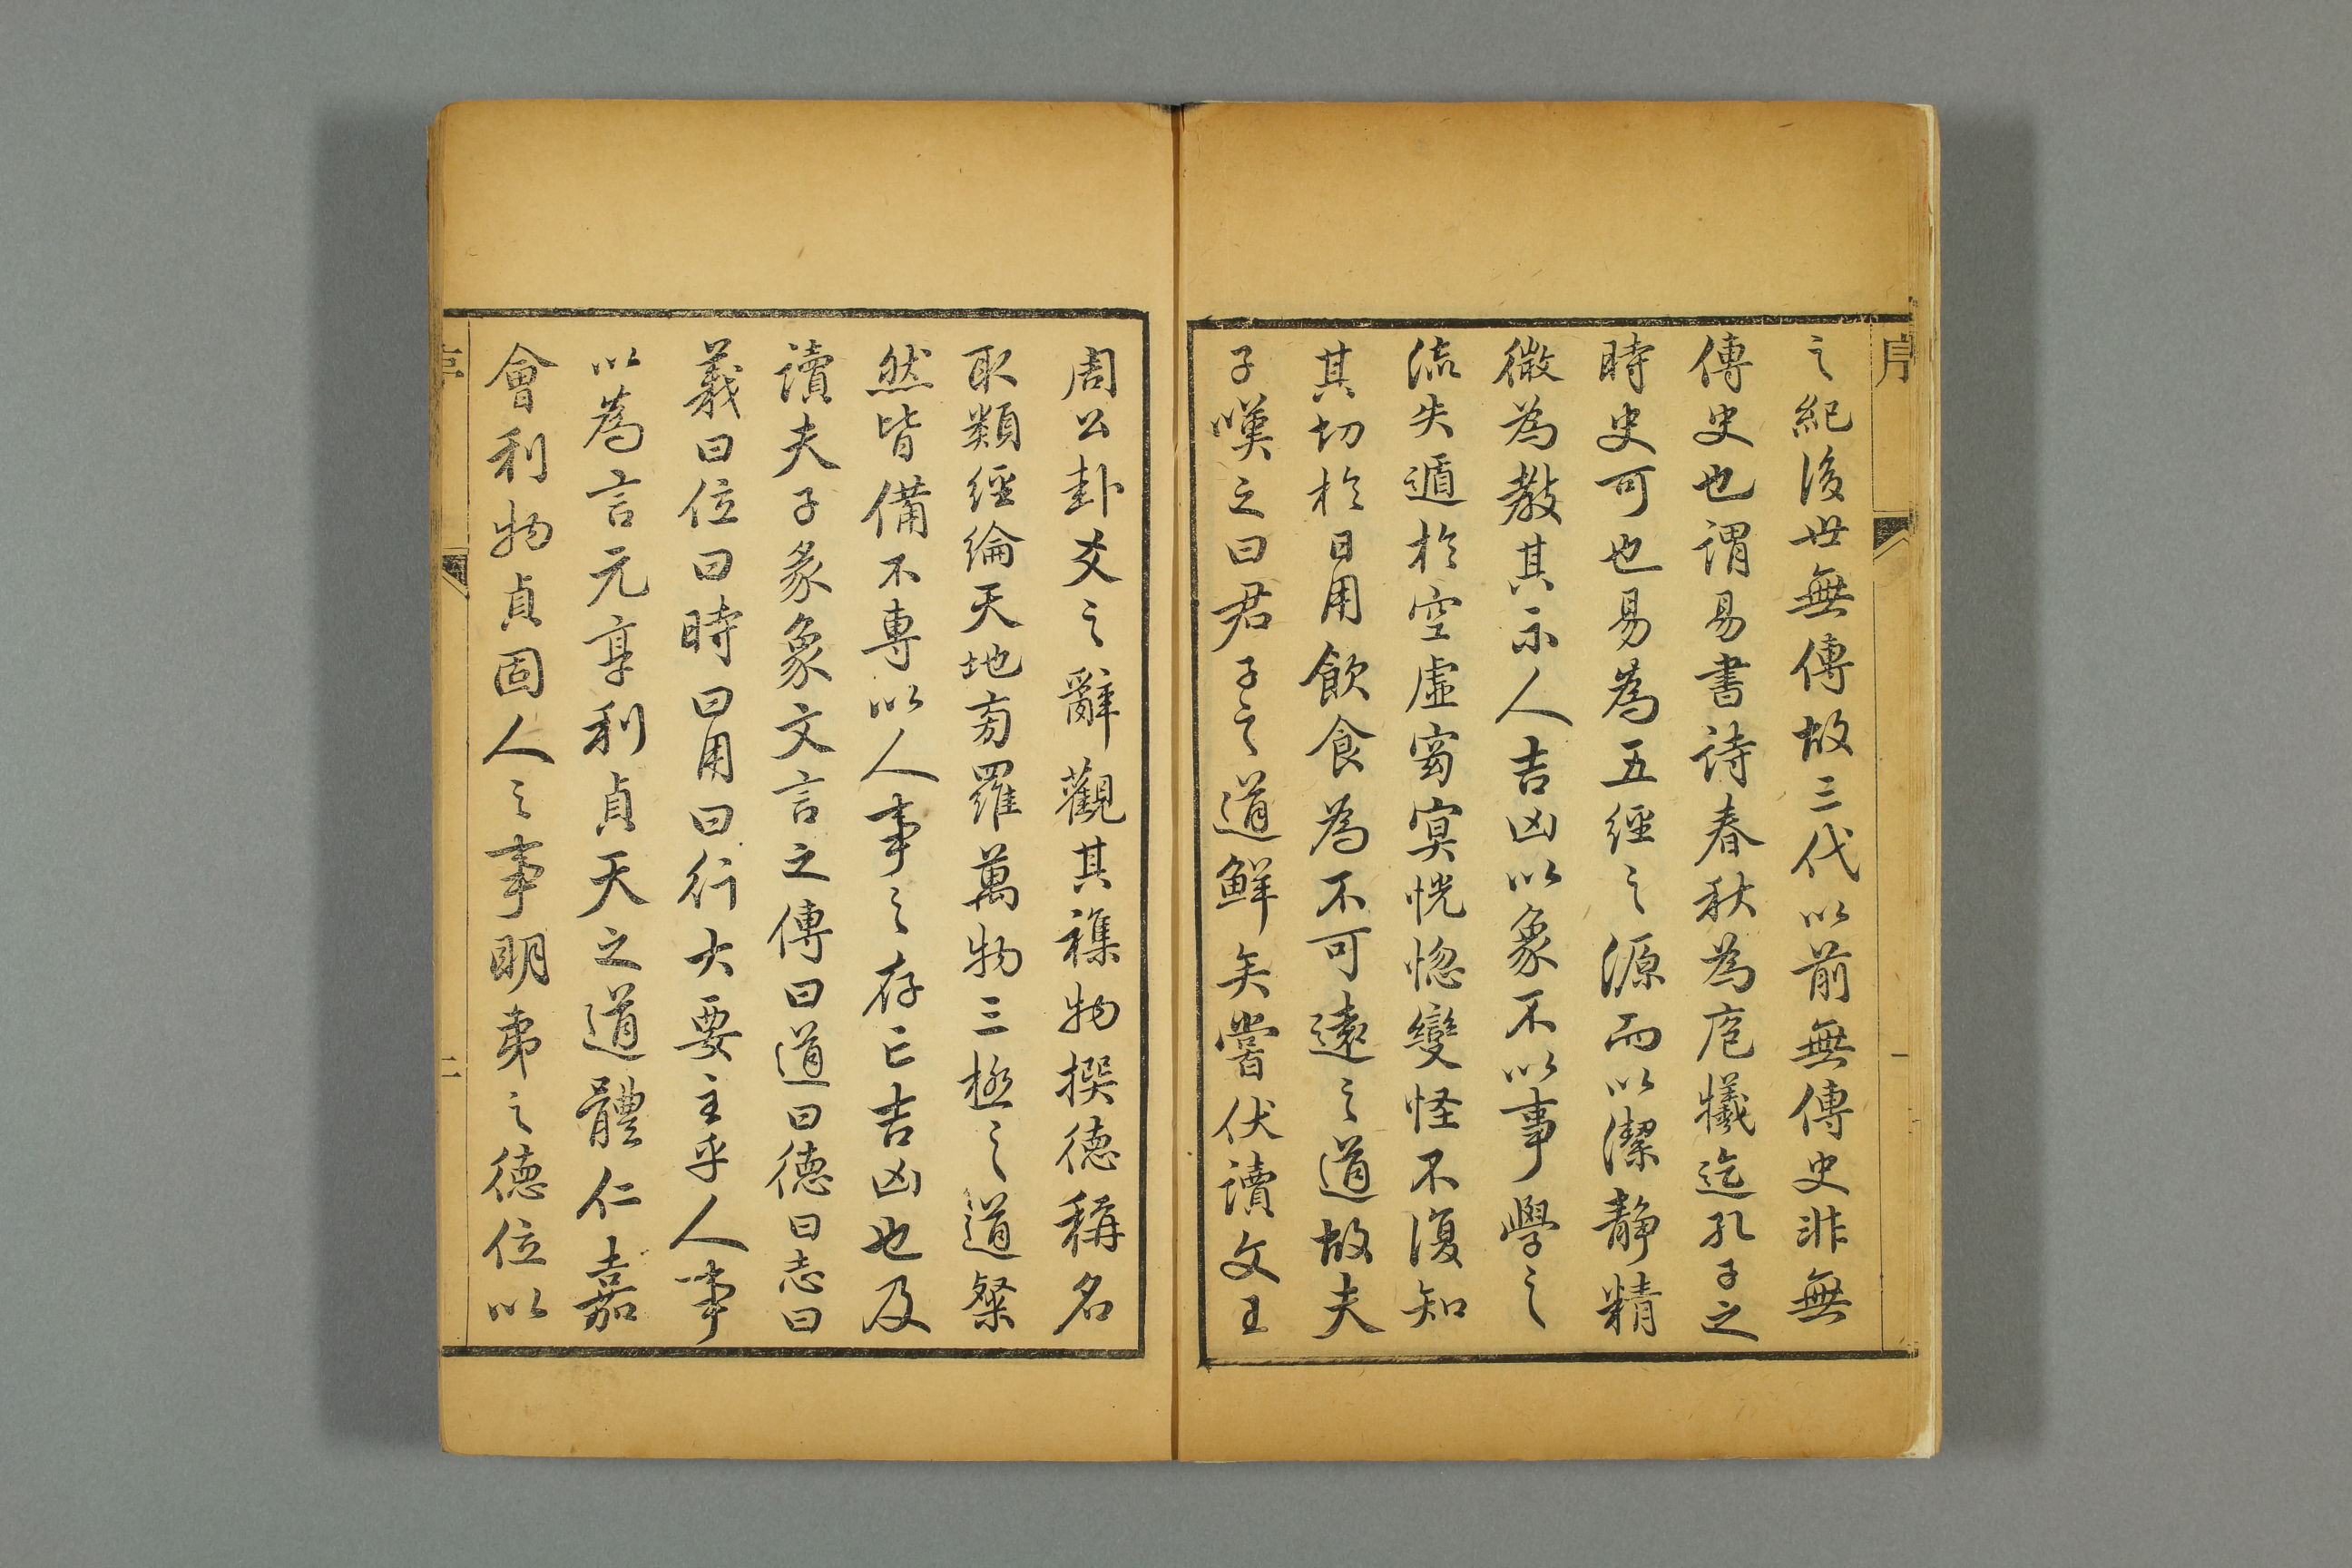 序
一
之紀後世無傳故三代以前無傳史非無
傳史也謂易書詩春秋為庖犧迄孔子之
時史可也易為五經之源而以潔靜精
微為教其示人吉凶以象不以事學之
流失遁於空虛窈冥恍惚變怪不復知
其切於日用飲食為不可遠之道故夫
子嘆之曰君子之道鮮矣嘗伏讀文王
周公卦爻之辭觀其襍物撰德稱名
取類經綸天地旁羅萬物三極之道粲
然皆備不專以人事之存亡吉凶也及
讀夫子彖象文言之傳曰道曰德曰志曰
義曰位曰時曰用曰行大要主乎人事
以為言元亨利貞天之道體仁嘉
會利物貞固人之事明弟之德位以
序
二